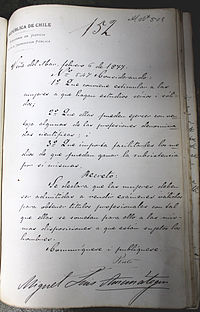 REPUBLICA DE CHILE
152
Viña del Mar, febrero 6 de 1877.
Considerando:
1º Que conviene estimular a las
mujeres a que hagan estudios serios i sóli-
dos;
2º Que ellas pueden ejercer con ven-
taja alguna de las profesiones denomina-
das científicas; i
3º Que importa facilitarles los me-
dios de que puedan ganar la subsistencia
por sí mismas,
Decreto:
Se declara que las mujeres deben
ser admitidas a rendir exámenes válidos
para obtener títulos profesionales con tal
que ellas se sometan para ello a las mis-
mas disposiciones a que están sujetos los
hombres.
Comuníquese i publíquese.
Pinto
Miguel Luis Amunátegui